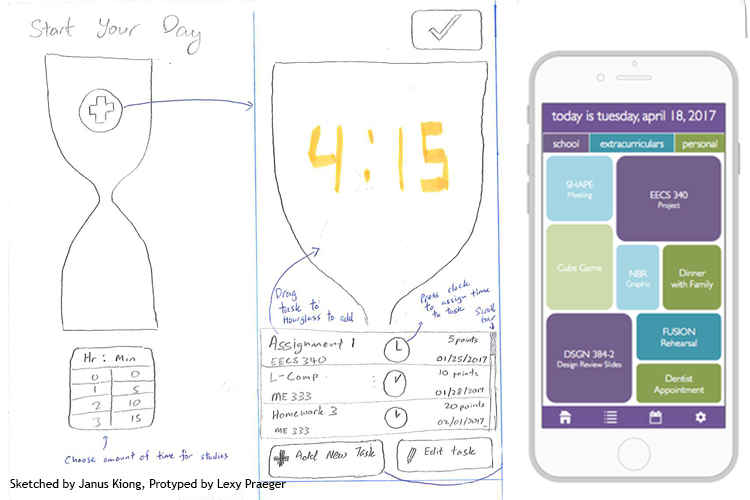 Start Your Day
Hr : Min
0 0
1 5
2 10
3 15
Choose amount of time for studies
4:15
Drag
task to
Hourglass to add
Press clock
to assign time
to task
Scroll
bar
Assignment 1 5 points
EECS 340 01/25/2017
L-Comp. 10 points
ME 333 01/28/2017
Homework 3 20 points
ME 333 02/01/2017
Add New Task
Edit task
today is tuesday, april 18, 2017
school extracurriculars personal
SHAPE
Meeting
EECS 340
Project
Cubs Game
NBR
Graphic
Dinner
with Family
DSGN 384-2
Design Review Slides
FUSION
Rehearsal
Dentist
Appointment
Sketched by Janus Kiong, Protyped by Lexy Praeger